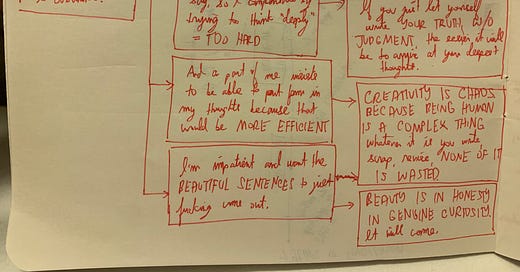 trying to think deeply"
= TOO HARD
If you just let yourself
write YOUR TRUTH, W/O
JUDGMENT, the easier it will
be to arrive at your deepest
thoughts.
And a part of me
to be able to put form in
my thoughts because that
would be MORE EFFICIENT
CREATIVITY IS CHAOS
BECAUSE BEING HUMAN
IS A COMPLEX THING
whatever it is you write,
scrap, revise, NONE OF IT
IS WASTED
I'm impatient and want the
BEAUTIFUL SENTENCES to just
fucking come out.
BEAUTY IS IN HONESTY
IN GENUINE CURIOSITY
It will come.